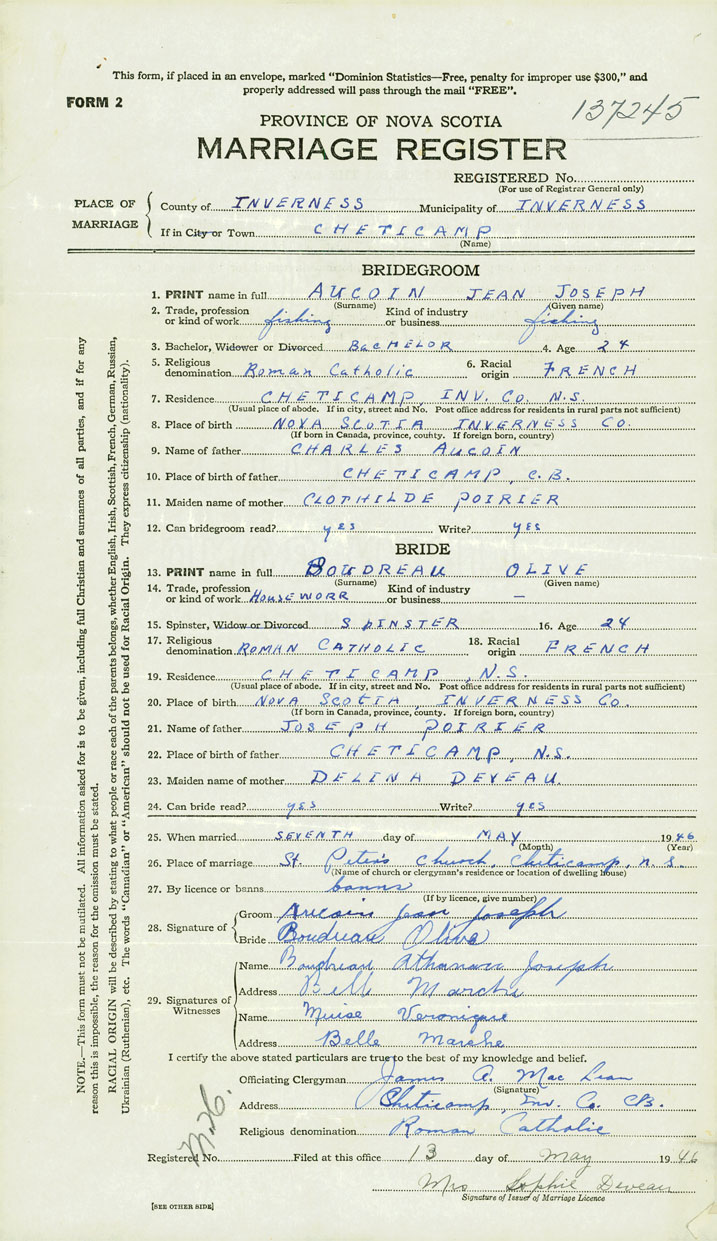 This form, if placed in an envelope, marked "Dominion Statistics—Free, penalty for improper use $300," and
properly addressed will pass through the mail "FREE".
FORM 2
137245
PROVINCE OF NOVA SCOTIA
MARRIAGE REGISTER
REGISTERED No.
(For use of Registrar General only)
PLACE OF MARRIAGE
County of INVERNESS Municipality of INVERNESS
If in City or Town CHETICAMP
(Name)
BRIDEGROOM
1. PRINT name in full AUCOIN JEAN JOSEPH
(Surname) (Given name)
2. Trade, profession or kind of work fishing Kind of industry or business fishing
3. Bachelor, Widower or Divorced BACHELOR 4. Age 24
5. Religious denomination Roman Catholic 6. Racial origin FRENCH
7. Residence CHETICAMP, INV. CO. N.S.
(Usual place of abode. If in city, street and No. Post office address for residents in rural parts not sufficient)
8. Place of birth NOVA SCOTIA INVERNESS CO.
(If born in Canada, province, county. If foreign born, country)
9. Name of father CHARLES AUCOIN
10. Place of birth of father CHETICAMP, C.B.
11. Maiden name of mother CLOTHILDE POIRIER
12. Can bridegroom read? yes Write? yes
BRIDE
13. PRINT name in full BOUDREAU OLIVE
(Surname) (Given name)
14. Trade, profession or kind of work HOUSEWORR Kind of industry or business —
15. Spinster, Widow or Divorced SPINSTER 16. Age 24
17. Religious denomination ROMAN CATHOLIC 18. Racial origin FRENCH
19. Residence CHETICAMP, N.S.
(Usual place of abode. If in city, street and No. Post office address for residents in rural parts not sufficient)
20. Place of birth NOVA SCOTIA, INVERNESS CO.
(If born in Canada, province, county. If foreign born, country)
21. Name of father JOSEPH POIRIER
22. Place of birth of father CHETICAMP, N.S.
23. Maiden name of mother DELINA DEVEAU.
24. Can bride read? yes Write? yes
25. When married SEVENTH day of MAY 1946
(Month) (Year)
26. Place of marriage St. Peter's Church, Cheticamp, N.S.
(Name of church or clergyman's residence or location of dwelling house)
27. By licence or banns banns
(If by licence, give number)
28. Signature of
Groom Aucoin Jean Joseph
Bride Boudreau Olive
29. Signatures of Witnesses
Name Boudreau Joseph
Address Belle Marche
Name Muise Veronique
Address Belle Marche
I certify the above stated particulars are true to the best of my knowledge and belief.
Officiating Clergyman James A. Mac Lean
(Signature)
Address Cheticamp, Inv. Co. CB.
Religious denomination Roman Catholic
Registered No. Filed at this office 13 day of May 1946
Mrs Sophie Deveau
Signature of Issuer of Marriage Licence
[SEE OTHER SIDE]
NOTE.—This form must not be mutilated. All information asked for is to be given, including full Christian and surnames of all parties, and if for any
reason this is impossible, the reason for the omission must be stated.
RACIAL ORIGIN will be described by stating to what people or race each of the parents belongs, whether English, Irish, Scottish, French, German, Russian,
Ukrainian (Ruthenian), etc. The words "Canadian" or "American" should not be used for Racial Origin. They express citizenship (nationality).